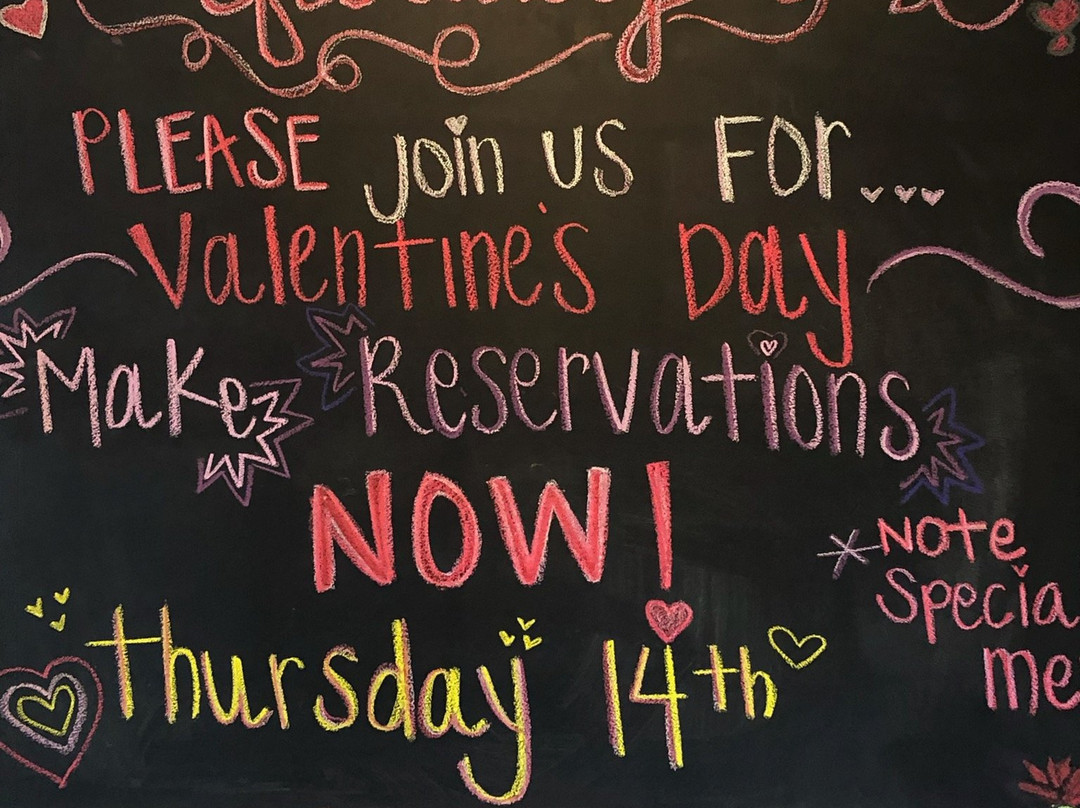 PLEASE join us For...
Valentine's Day
Make Reservations
NOW!
Thursday 14th
*Note
Specia
me